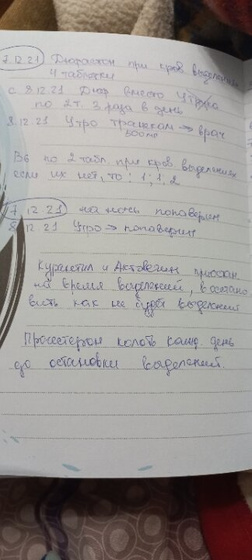 7.12.21 Дюфастон при кров. выделениях
4 таблетки
с 8.12.21 Дюф. вместо Утрож
по 2т. 3 раза в день
8.12.21 Утро → врач
В6 по 2 табл. при кров выделениях
если их нет, то 1, 1, 2
7.12.21 на ночь папаверин
8.12.21 Утро → папаверин
Курантил и Актовегин
на время выделений,
вить как не будет выделений
Прогестерон колоть кажд. день
до остановки выделений.